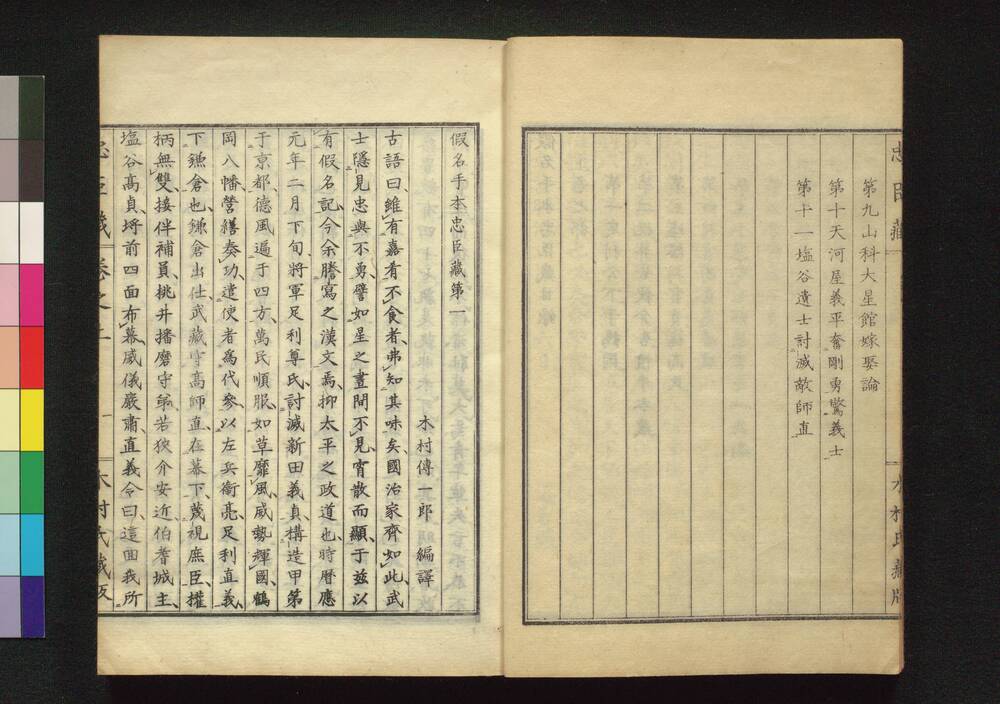 忠臣藏
第九山科大星館嫁娶論
第十天河屋義平奮剛勇驚義士
第十一塩谷遺士討滅敵師直
木村氏藏版
假名手本忠臣藏第一
木村傳一郎編譯
古語曰雖有嘉肴不食者弗知其味矣國治家齊如此武
士隱見忠與不勇譬如星之晝間不見宵散而顯于茲以
有假名記今余謄寫之漢文焉抑太平之政道也時曆應
元年二月下旬將軍足利尊氏討滅新田義貞構造甲第
于京都德風遍于四方萬民順服如草靡風威勢輝國鶴
岡八幡營繕奏功遣使者爲代參以左兵衞亮足利直義
下鎌倉也鎌倉出仕武藏守高師直在幕下蔑視庶臣權
柄無雙接伴補員桃井播磨守弟若狹介安近伯耆城主
塩谷高貞埓前四面布幕威儀嚴肅直義令曰這回我所
忠臣藏 卷之上 一 木村氏藏版